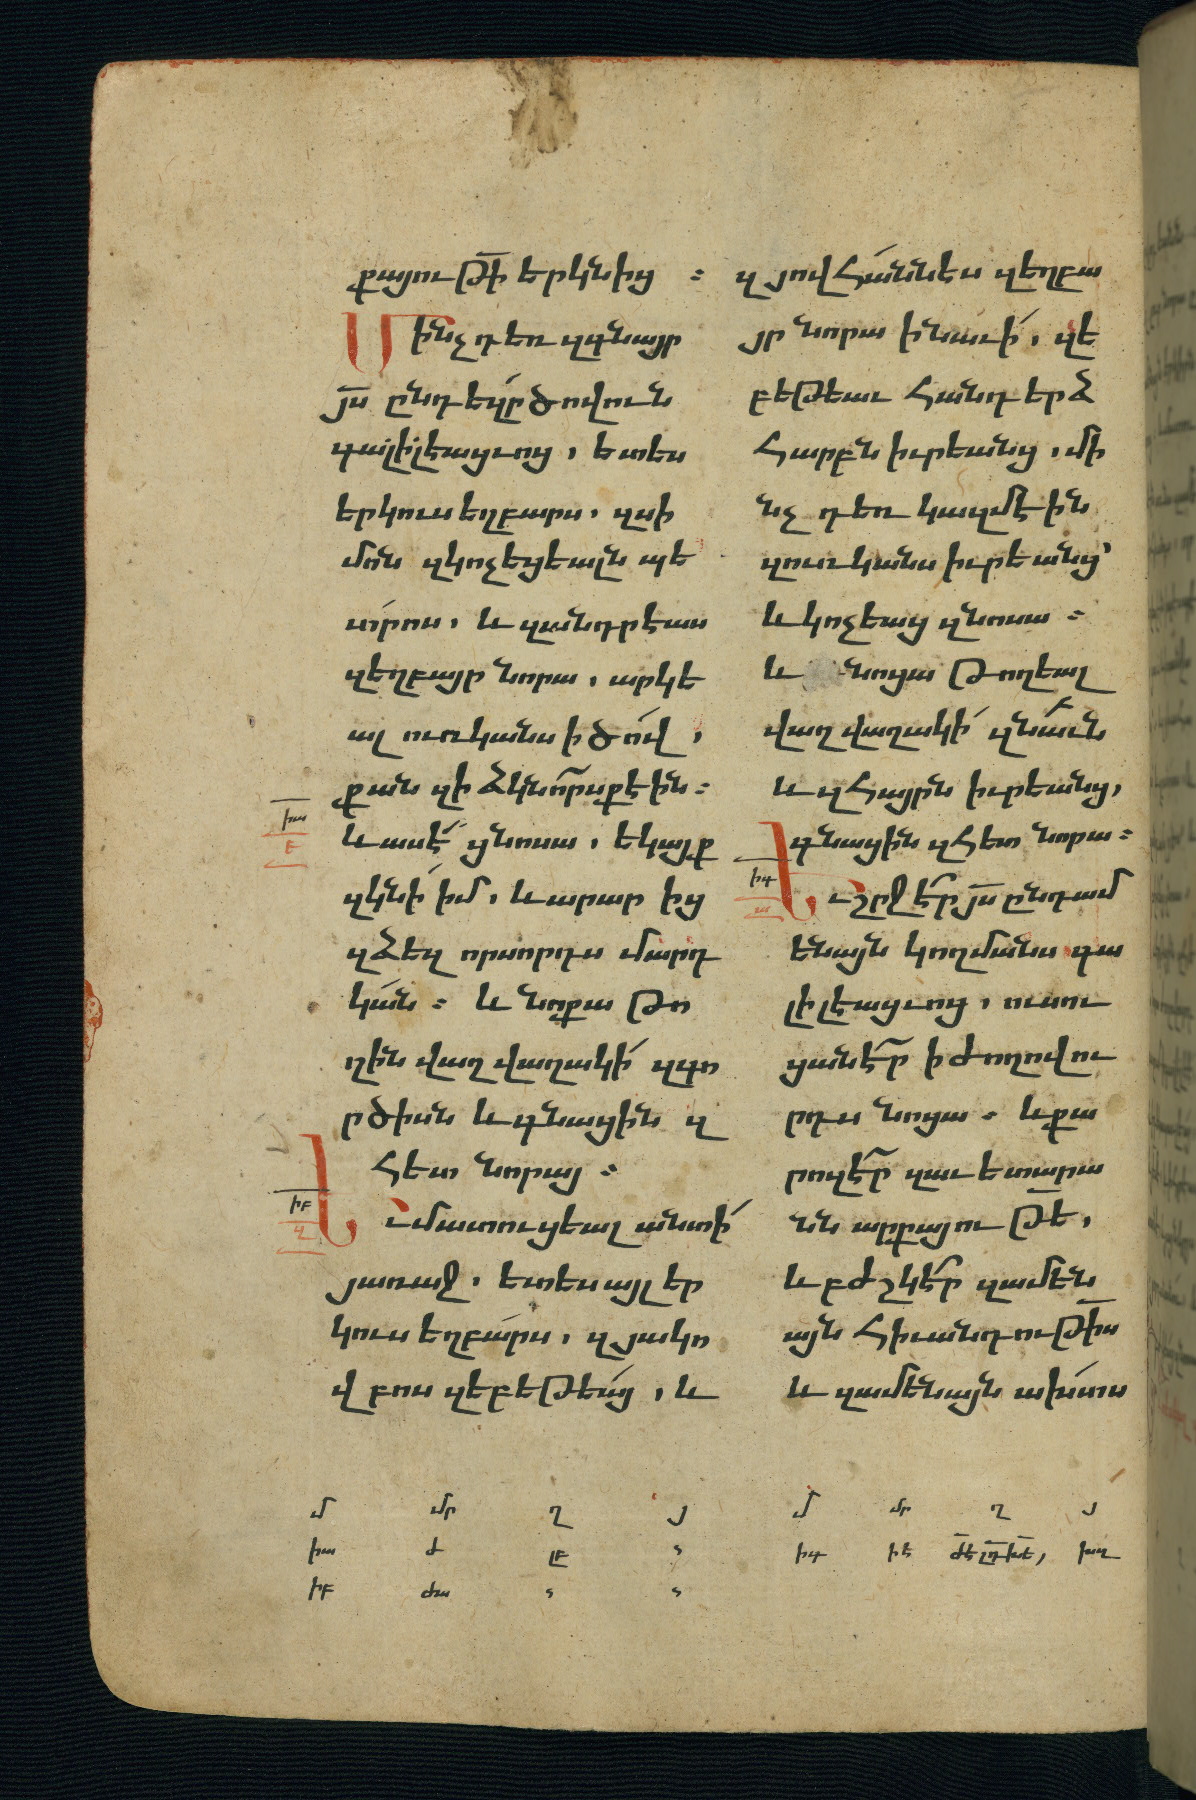 քայութի երկնից ։
Մինչդեռ զգնայր
յս ընդ եզր ծովուն
գալիլեացւոց, ետես
երկուս եղբարս. զսի
մոն զկոչեցեալն պե
տրոս, և զանդրէաս
զեղբայր նորա, արկե
ալ ուռկանս ի ծով,
քանզի ձկնորսք էին ։
և ասէ ցնոսա, եկայք
զկնի իմ, և արարից
զձեզ որսորդս մարդ
կան ։ և նոքա թո
ղին վաղվաղակի զգո
րծիսն և գնացին զ
հետ նորայ ։
Եւ մատուցեալ անտի
յառաջ. ետես այլ եր
կուս եղբարս, զյակո
վբոս զեբեթեայ, և
զյովհաննէս զեղբա
յր նորա ի նաւի, զե
բեթեաւ հանդերձ
հարբն իւրեանց, մի
նչդեռ կազմէին
զուռկանս իւրեանց՝
և կոչեաց զնոսա ։
և նոցա թողեալ
վաղվաղակի զնաւն
և զհայրն իւրեանց,
գնացին զհետ նորա ։
Եւ շրջէր յս ընդ ամ
ենայն կողմանս գա
լիլեացւոց, ուսու
ցանէր ի ժողովու
րդս նոցա ։ և քա
րոզէր զաւետարա
նն արքայութե,
և բժշկէր զամեն
այն հիւանդութիս
և զամենայն ախտս
իա
բ
իբ
զ
իգ
ա
մ մր ղ յ մ մր ղ յ
իա ժ լբ
իգ իէ
իբ ժա